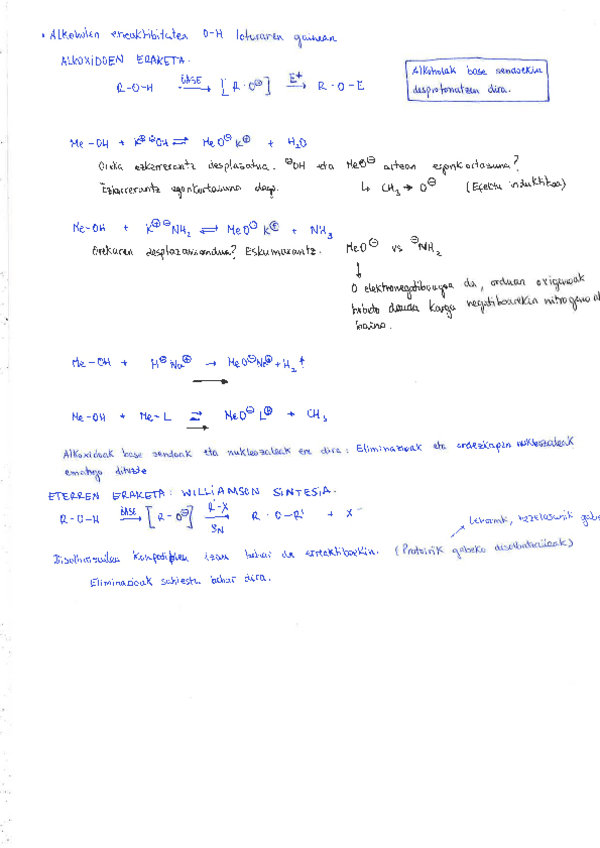 • Alkoholen erreaktibitatea O-H loturaren gainean
ALKOXIDOEN ERAKETA.
R-O-H —BASE→ [R-O⊖] —E⁺→ R-O-E
Alkoholak base sendoekin
desprotonatzen dira.
Me-OH + K⊕ ⊖OH ⇌ MeO⊖ K⊕ + H₂O
Oreka ezkerrerantz desplazatua. ⊖OH eta MeO⊖ artean egonkortasuna?
Ezkerrerantz egonkortasuna dago. ↳ CH₃ → O⊖ (Efektu induktiboa)
Me-OH + K⊕ ⊖NH₂ ⇌ MeO⊖ K⊕ + NH₃
Orekaren desplazamendua? Eskumarantz.
MeO⊖ vs ⊖NH₂
↓
O elektronegatiboagoa da, orduan oxigenoak
hobeto darama karga negatiboarekin nitrogenoak
baino.
Me-OH + H⊖ Na⊕ → MeO⊖Na⊕ + H₂↑
Me-OH + Me-L ⇌ MeO⊖ L⊕ + CH₃
Alkoxidoak base sendoak eta nukleozaleak ere dira: Eliminazioak eta ordezkapen nukleozaleak
emango dituzte
ETERREN ERAKETA: WILLIAMSON SINTESIA.
R-O-H —BASE→ [R-O⊖] —R'-X / SN→ R-O-R' + X⁻
Disolbatzailea konpatiblea izan behar da erreaktiboekin. (Protoirik gabeko disolbatzaileak)
Eliminazioak saihestu behar dira.